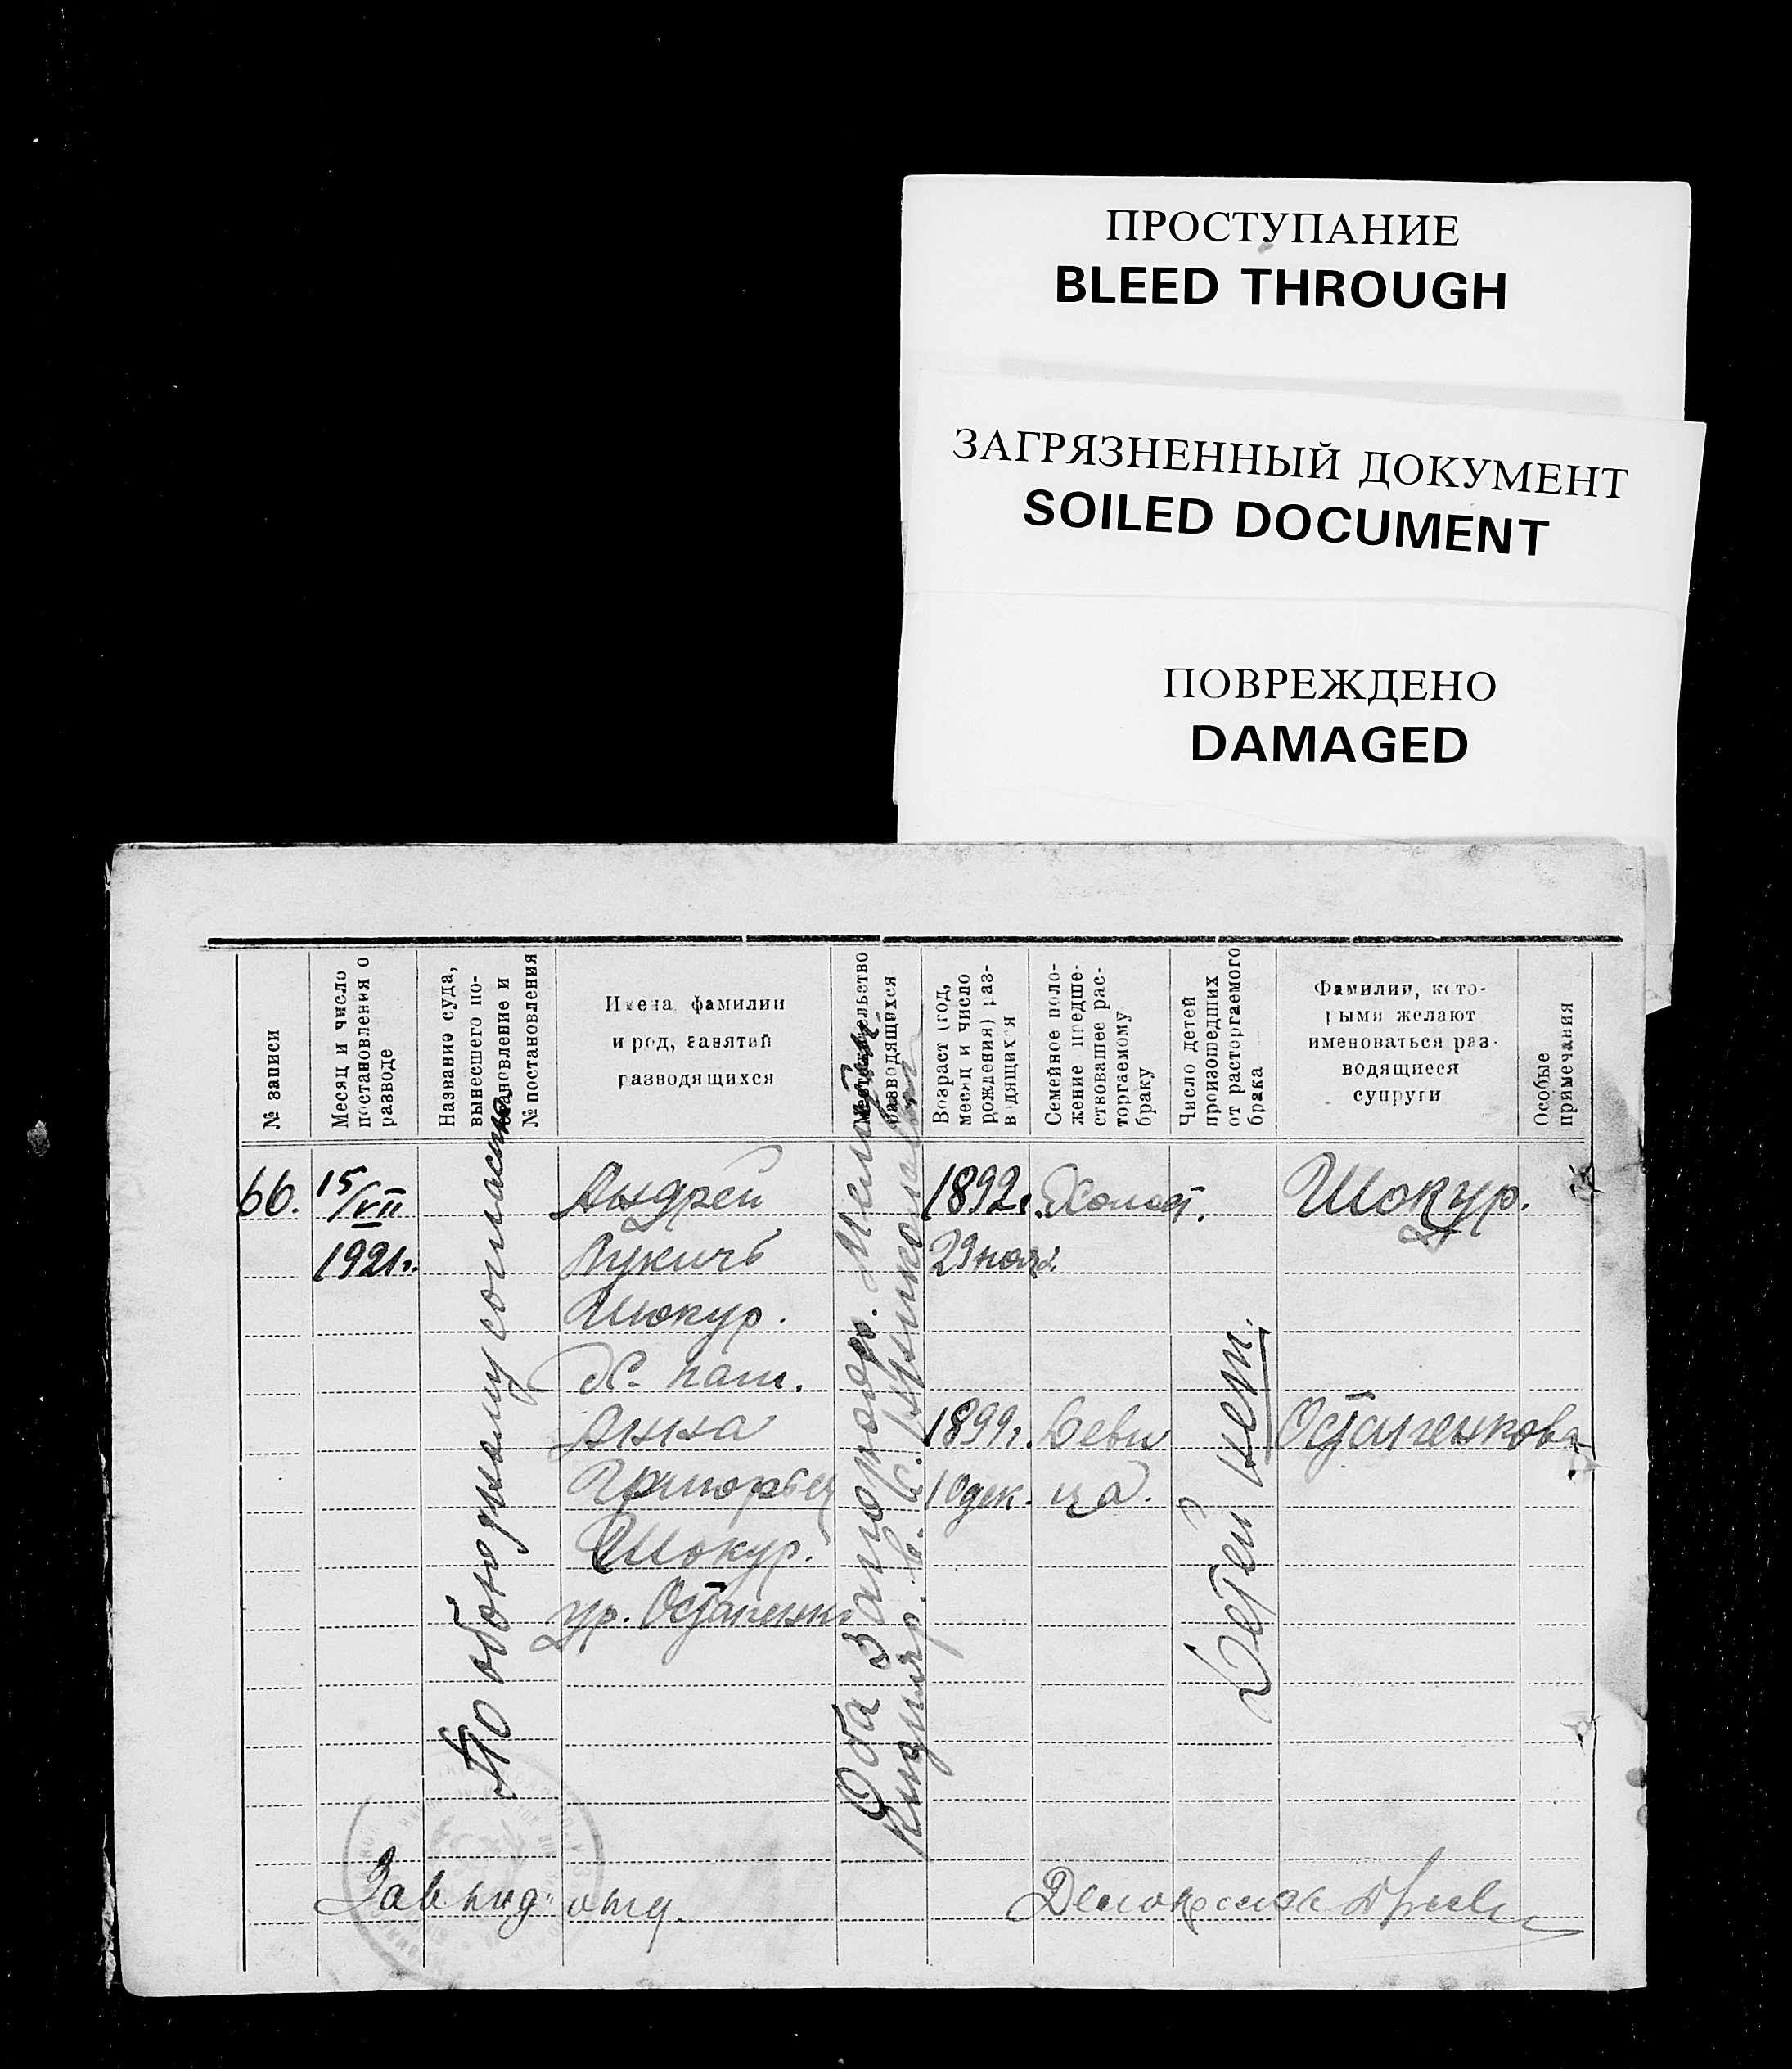 ПРОСТУПАНИЕ
BLEED THROUGH
ЗАГРЯЗНЕННЫЙ ДОКУМЕНТ
SOILED DOCUMENT
ПОВРЕЖДЕНО
DAMAGED
№ записи
Месяц и число
постановления о
разводе
Название суда,
вынесшего по-
становление и
№ постановления
Имена фамилии
и род, занятий
разводящихся
Местожительство
разводящихся
Возраст (год,
месяц и число
рождения) раз-
водящихся
Семейное поло-
жение предше-
ствовавшее рас-
торгаемому
браку
Число детей
происшедших
от расторгаемого
брака
Фамилии, кото-
рыми желают
именоваться раз-
водящиеся
супруги
Особые
примечания
66.
15/VII
1921г.
По обоюдному согласию
Андрей
Лукичъ
Шокур.
х. паш.
Анна
Григорьев
Шокур.
ур. Остапенк
Оба Запорожр.
1892г.
29 нояб.
1899г.
10 дек.
Холост.
Деви
ца.
Детей нет.
Шокур.
Остапенкова
Зав под отд.